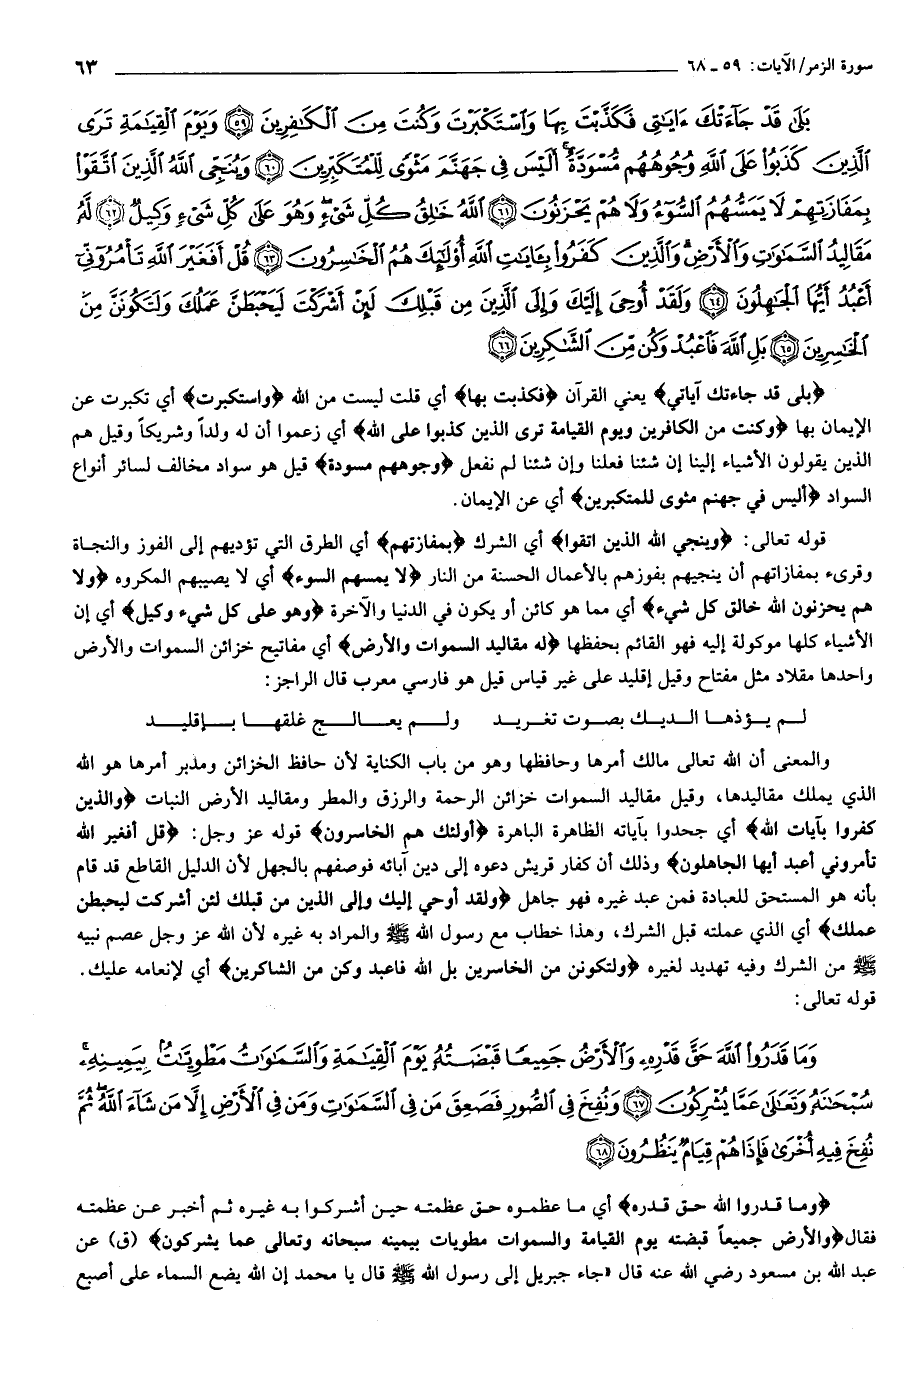 سورة الزمر/ الآيات: ٥٩ ـ ٦٨ ٦٣
بَلَىٰ قَدْ جَآءَتْكَ ءَايَٰتِى فَكَذَّبْتَ بِهَا وَٱسْتَكْبَرْتَ وَكُنتَ مِنَ ٱلْكَٰفِرِينَ ﴿٥٩﴾ وَيَوْمَ ٱلْقِيَٰمَةِ تَرَى
ٱلَّذِينَ كَذَبُوا۟ عَلَى ٱللَّهِ وُجُوهُهُم مُّسْوَدَّةٌ ۚ أَلَيْسَ فِى جَهَنَّمَ مَثْوًى لِّلْمُتَكَبِّرِينَ ﴿٦٠﴾ وَيُنَجِّى ٱللَّهُ ٱلَّذِينَ ٱتَّقَوْا۟
بِمَفَازَتِهِمْ لَا يَمَسُّهُمُ ٱلسُّوٓءُ وَلَا هُمْ يَحْزَنُونَ ﴿٦١﴾ ٱللَّهُ خَٰلِقُ كُلِّ شَىْءٍ ۖ وَهُوَ عَلَىٰ كُلِّ شَىْءٍ وَكِيلٌ ﴿٦٢﴾ لَّهُ
مَقَالِيدُ ٱلسَّمَٰوَٰتِ وَٱلْأَرْضِ ۗ وَٱلَّذِينَ كَفَرُوا۟ بِـَٔايَٰتِ ٱللَّهِ أُو۟لَٰٓئِكَ هُمُ ٱلْخَٰسِرُونَ ﴿٦٣﴾ قُلْ أَفَغَيْرَ ٱللَّهِ تَأْمُرُوٓنِّىٓ
أَعْبُدُ أَيُّهَا ٱلْجَٰهِلُونَ ﴿٦٤﴾ وَلَقَدْ أُوحِىَ إِلَيْكَ وَإِلَى ٱلَّذِينَ مِن قَبْلِكَ لَئِنْ أَشْرَكْتَ لَيَحْبَطَنَّ عَمَلُكَ وَلَتَكُونَنَّ مِنَ
ٱلْخَٰسِرِينَ ﴿٦٥﴾ بَلِ ٱللَّهَ فَٱعْبُدْ وَكُن مِّنَ ٱلشَّٰكِرِينَ ﴿٦٦﴾
﴿بلى قد جاءتك آياتي﴾ يعني القرآن ﴿فكذبت بها﴾ أي قلت ليست من الله ﴿واستكبرت﴾ أي تكبرت عن
الإيمان بها ﴿وكنت من الكافرين ويوم القيامة ترى الذين كذبوا على الله﴾ أي زعموا أن له ولداً وشريكاً وقيل هم
الذين يقولون الأشياء إلينا إن شئنا فعلنا وإن شئنا لم نفعل ﴿وجوههم مسودة﴾ قيل هو سواد مخالف لسائر أنواع
السواد ﴿أليس في جهنم مثوى للمتكبرين﴾ أي عن الإيمان.
قوله تعالى: ﴿وينجي الله الذين اتقوا﴾ أي الشرك ﴿بمفازتهم﴾ أي الطرق التي تؤديهم إلى الفوز والنجاة
وقرىء بمفازاتهم أن ينجيهم بفوزهم بالأعمال الحسنة من النار ﴿لا يمسهم السوء﴾ أي لا يصيبهم المكروه ﴿ولا
هم يحزنون الله خالق كل شيء﴾ أي مما هو كائن أو يكون في الدنيا والآخرة ﴿وهو على كل شيء وكيل﴾ أي إن
الأشياء كلها موكولة إليه فهو القائم بحفظها ﴿له مقاليد السموات والأرض﴾ أي مفاتيح خزائن السموات والأرض
واحدها مقلاد مثل مفتاح وقيل إقليد على غير قياس قيل هو فارسي معرب قال الراجز:
لم يؤذها الديك بصوت تغريد ولم يعالج غلقها بإقليد
والمعنى أن الله تعالى مالك أمرها وحافظها وهو من باب الكناية لأن حافظ الخزائن ومدبر أمرها هو الله
الذي يملك مقاليدها، وقيل مقاليد السموات خزائن الرحمة والرزق والمطر ومقاليد الأرض النبات ﴿والذين
كفروا بآيات الله﴾ أي جحدوا بآياته الظاهرة الباهرة ﴿أولئك هم الخاسرون﴾ قوله عز وجل: ﴿قل أفغير الله
تأمروني أعبد أيها الجاهلون﴾ وذلك أن كفار قريش دعوه إلى دين آبائه فوصفهم بالجهل لأن الدليل القاطع قد قام
بأنه هو المستحق للعبادة فمن عبد غيره فهو جاهل ﴿ولقد أوحي إليك وإلى الذين من قبلك لئن أشركت ليحبطن
عملك﴾ أي الذي عملته قبل الشرك، وهذا خطاب مع رسول الله ﷺ والمراد به غيره لأن الله عز وجل عصم نبيه
ﷺ من الشرك وفيه تهديد لغيره ﴿ولتكونن من الخاسرين بل الله فاعبد وكن من الشاكرين﴾ أي لإنعامه عليك.
قوله تعالى:
وَمَا قَدَرُوا۟ ٱللَّهَ حَقَّ قَدْرِهِۦ وَٱلْأَرْضُ جَمِيعًا قَبْضَتُهُۥ يَوْمَ ٱلْقِيَٰمَةِ وَٱلسَّمَٰوَٰتُ مَطْوِيَّٰتٌۢ بِيَمِينِهِۦ ۚ
سُبْحَٰنَهُۥ وَتَعَٰلَىٰ عَمَّا يُشْرِكُونَ ﴿٦٧﴾ وَنُفِخَ فِى ٱلصُّورِ فَصَعِقَ مَن فِى ٱلسَّمَٰوَٰتِ وَمَن فِى ٱلْأَرْضِ إِلَّا مَن شَآءَ ٱللَّهُ ۖ ثُمَّ
نُفِخَ فِيهِ أُخْرَىٰ فَإِذَا هُمْ قِيَامٌ يَنظُرُونَ ﴿٦٨﴾
﴿وما قدروا الله حق قدره﴾ أي ما عظموه حق عظمته حين أشركوا به غيره ثم أخبر عن عظمته
فقال﴿والأرض جميعاً قبضته يوم القيامة والسموات مطويات بيمينه سبحانه وتعالى عما يشركون﴾ (ق) عن
عبد الله بن مسعود رضي الله عنه قال «جاء جبريل إلى رسول الله ﷺ قال يا محمد إن الله يضع السماء على أصبع